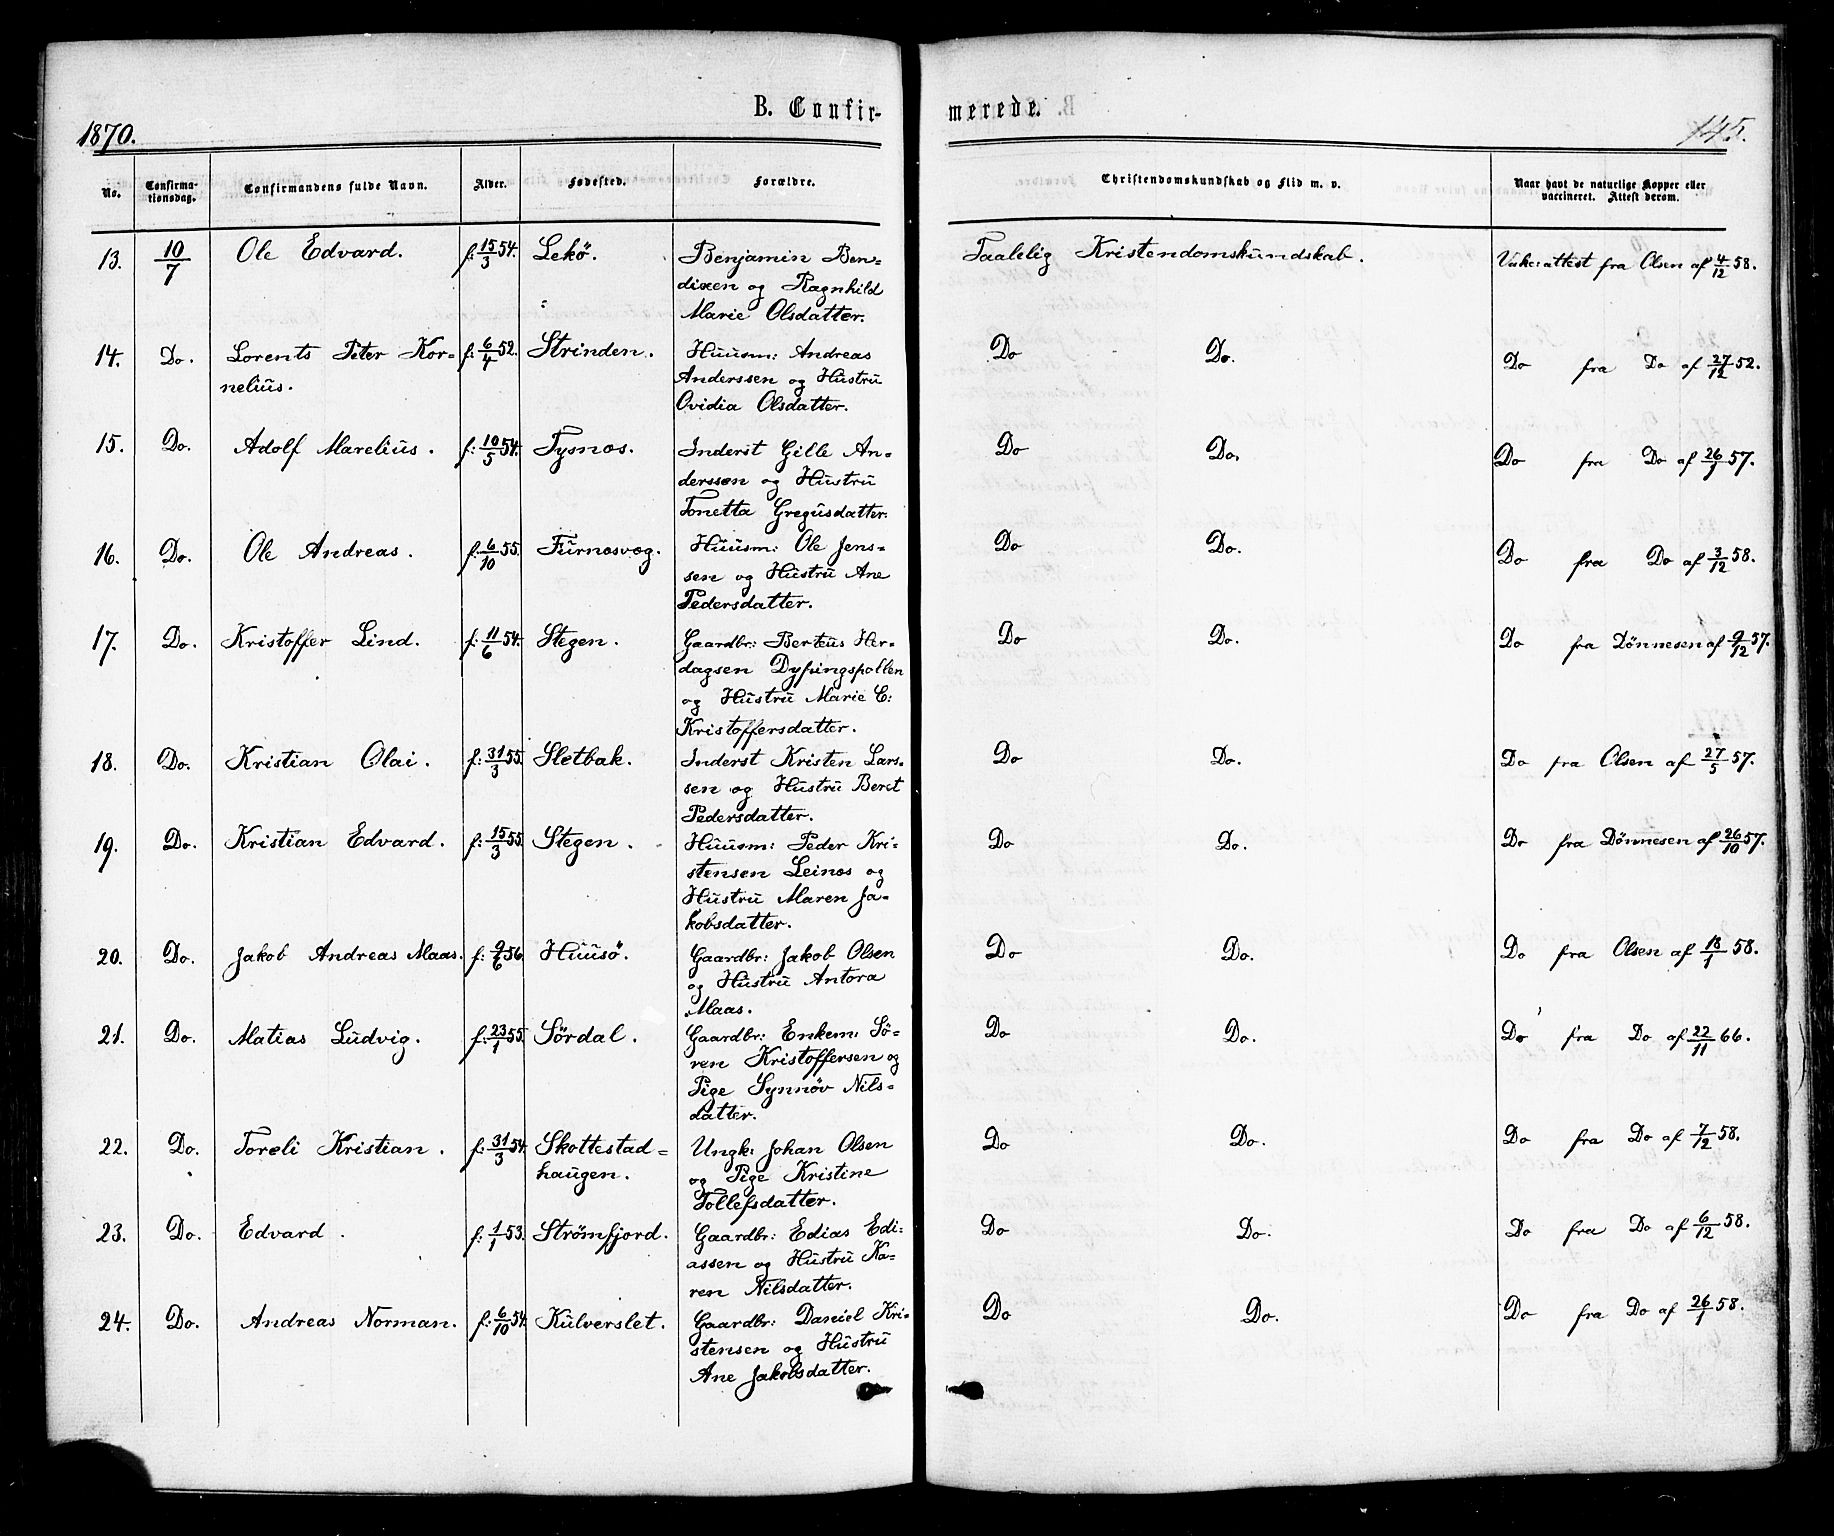 B. Confir-
merede.
1870.
145.
No.
Confirma-
tionsdag.
Confirmandens fulde Navn.
Alder.
Fødested.
Forældre.
Christendomskundskab og Flid m. v.
Naar havt de naturlige Kopper eller
vaccineret. Attest derom.
13. 10/7 Ole Edvard. f: 15/3 54. Lekø. Benjamin Ben- Taalelig Kristendomskundskab. Vakc: attest fra Olsen af 4/12 58.
dixen og Ragnhild
Marie Olsdatter.
14. Do. Lorents Peter Kor- f: 6/4 52. Strinden. Huusm: Andreas Do Do. Do fra Do af 27/12 52.
nelius. Anderssen og Hustru
Ovidia Olsdatter.
15. Do. Adolf Marelius. f: 10/5 54. Tysnæs. Inderst Gille An- Do Do. Do fra Do af 26/1 57.
derssen og Hustru
Tonetta Gregusdatter.
16. Do. Ole Andreas. f: 6/10 55. Furnæsvag. Huusm: Ole Jens- Do Do. Do fra Do af 3/12 58.
sen og Hustru Ane
Pedersdatter.
17. Do. Kristoffer Lind. f: 11/6 54. Stegen. Gaardbr: Berteus Her- Do Do. Do fra Dønnesen af 9/12 57.
dagsen Dypingspollen
og Hustru Marie C:
Kristoffersdatter.
18. Do. Kristian Olai. f: 31/3 55. Sletbak. Inderst Kristen Lars- Do Do. Do fra Olsen af 27/5 57.
sen og Hustru Beret
Pedersdatter.
19. Do. Kristian Edvard. f: 15/3 55. Stegen. Huusm: Peder Kri- Do Do. Do fra Dønnesen af 26/10 57.
stensen Leines og
Hustru Maren Ja-
kobsdatter.
20. Do. Jakob Andreas Maas. f: 9/6 56. Huusø. Gaardbr: Jakob Olsen Do Do. Do fra Olsen af 18/1 58.
og Hustru Antora
Maas.
21. Do. Matias Ludvig. f: 23/1 55. Sørdal. Gaardbr: Enkem: Sø- Do Do. Do fra Do af 22/11 66.
ren Kristoffersen og
Pige Synnøv Nils-
datter.
22. Do. Toreli Kristian. f: 31/3 54. Skottestad- Ungk: Johan Olsen Do Do. Do fra Do af 7/12 58.
haugen. og Pige Kristine
Tollefsdatter.
23. Do. Edvard. f: 1/1 53. Strømfjord. Gaardbr: Edias Edi- Do Do. Do fra Do af 6/12 58.
assen og Hustru Ka-
ren Nilsdatter.
24. Do. Andreas Norman. f: 6/10 54. Kulverslet. Gaardbr: Daniel Kri- Do Do. Do fra Do af 26/1 58.
stensen og Hustru
Ane Jakobsdatter.